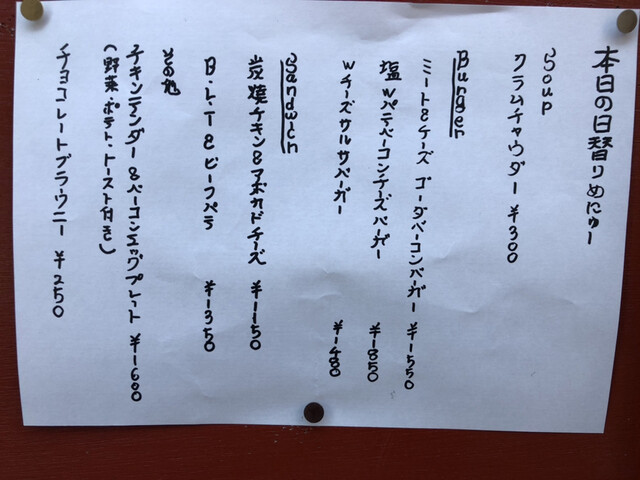 本日の日替りめにゅー
Soup
クラムチャウダー ¥300
Burger
ミート&チーズ ゴーダベーコンバーガー ¥1550
塩Wパテベーコンチーズバーガー ¥1850
Wチーズサルサバーガー ¥1480
Sandwich
炭焼チキン&アボカドチーズ ¥1150
B.L.T&ビーフパテ ¥1350
その他
チキンテンダー&ベーコンエッグプレート ¥1600
(野菜・ポテト・トースト付き)
チョコレートブラウニー ¥250